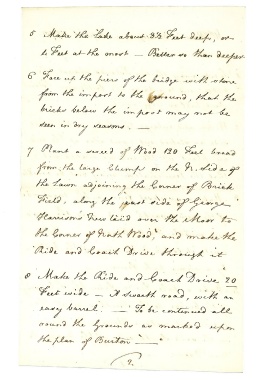 5 Make the Lake about 3½ Feet deep, or
4 Feet at the most — Better so than deeper
6 Face up the piers of the bridge with stone
from the impost to the ground, that the
bricks below the impost may not be
seen in dry seasons. —
7 Plant a screed of Wood 120 Feet broad
from the large Clump on the N. side of
the Lawn adjoining the Corner of Brick
Field, along the east side of George
Harrison's New land over the Moor to
the Corner of North Wood, and make the
Ride and Coach Drive through it
8 Make the Ride and Coach Drive 20
Feet wide — A swarth road, with an
easy barrel. — To be continued all
round the Grounds as marked upon
the plan of Burton —